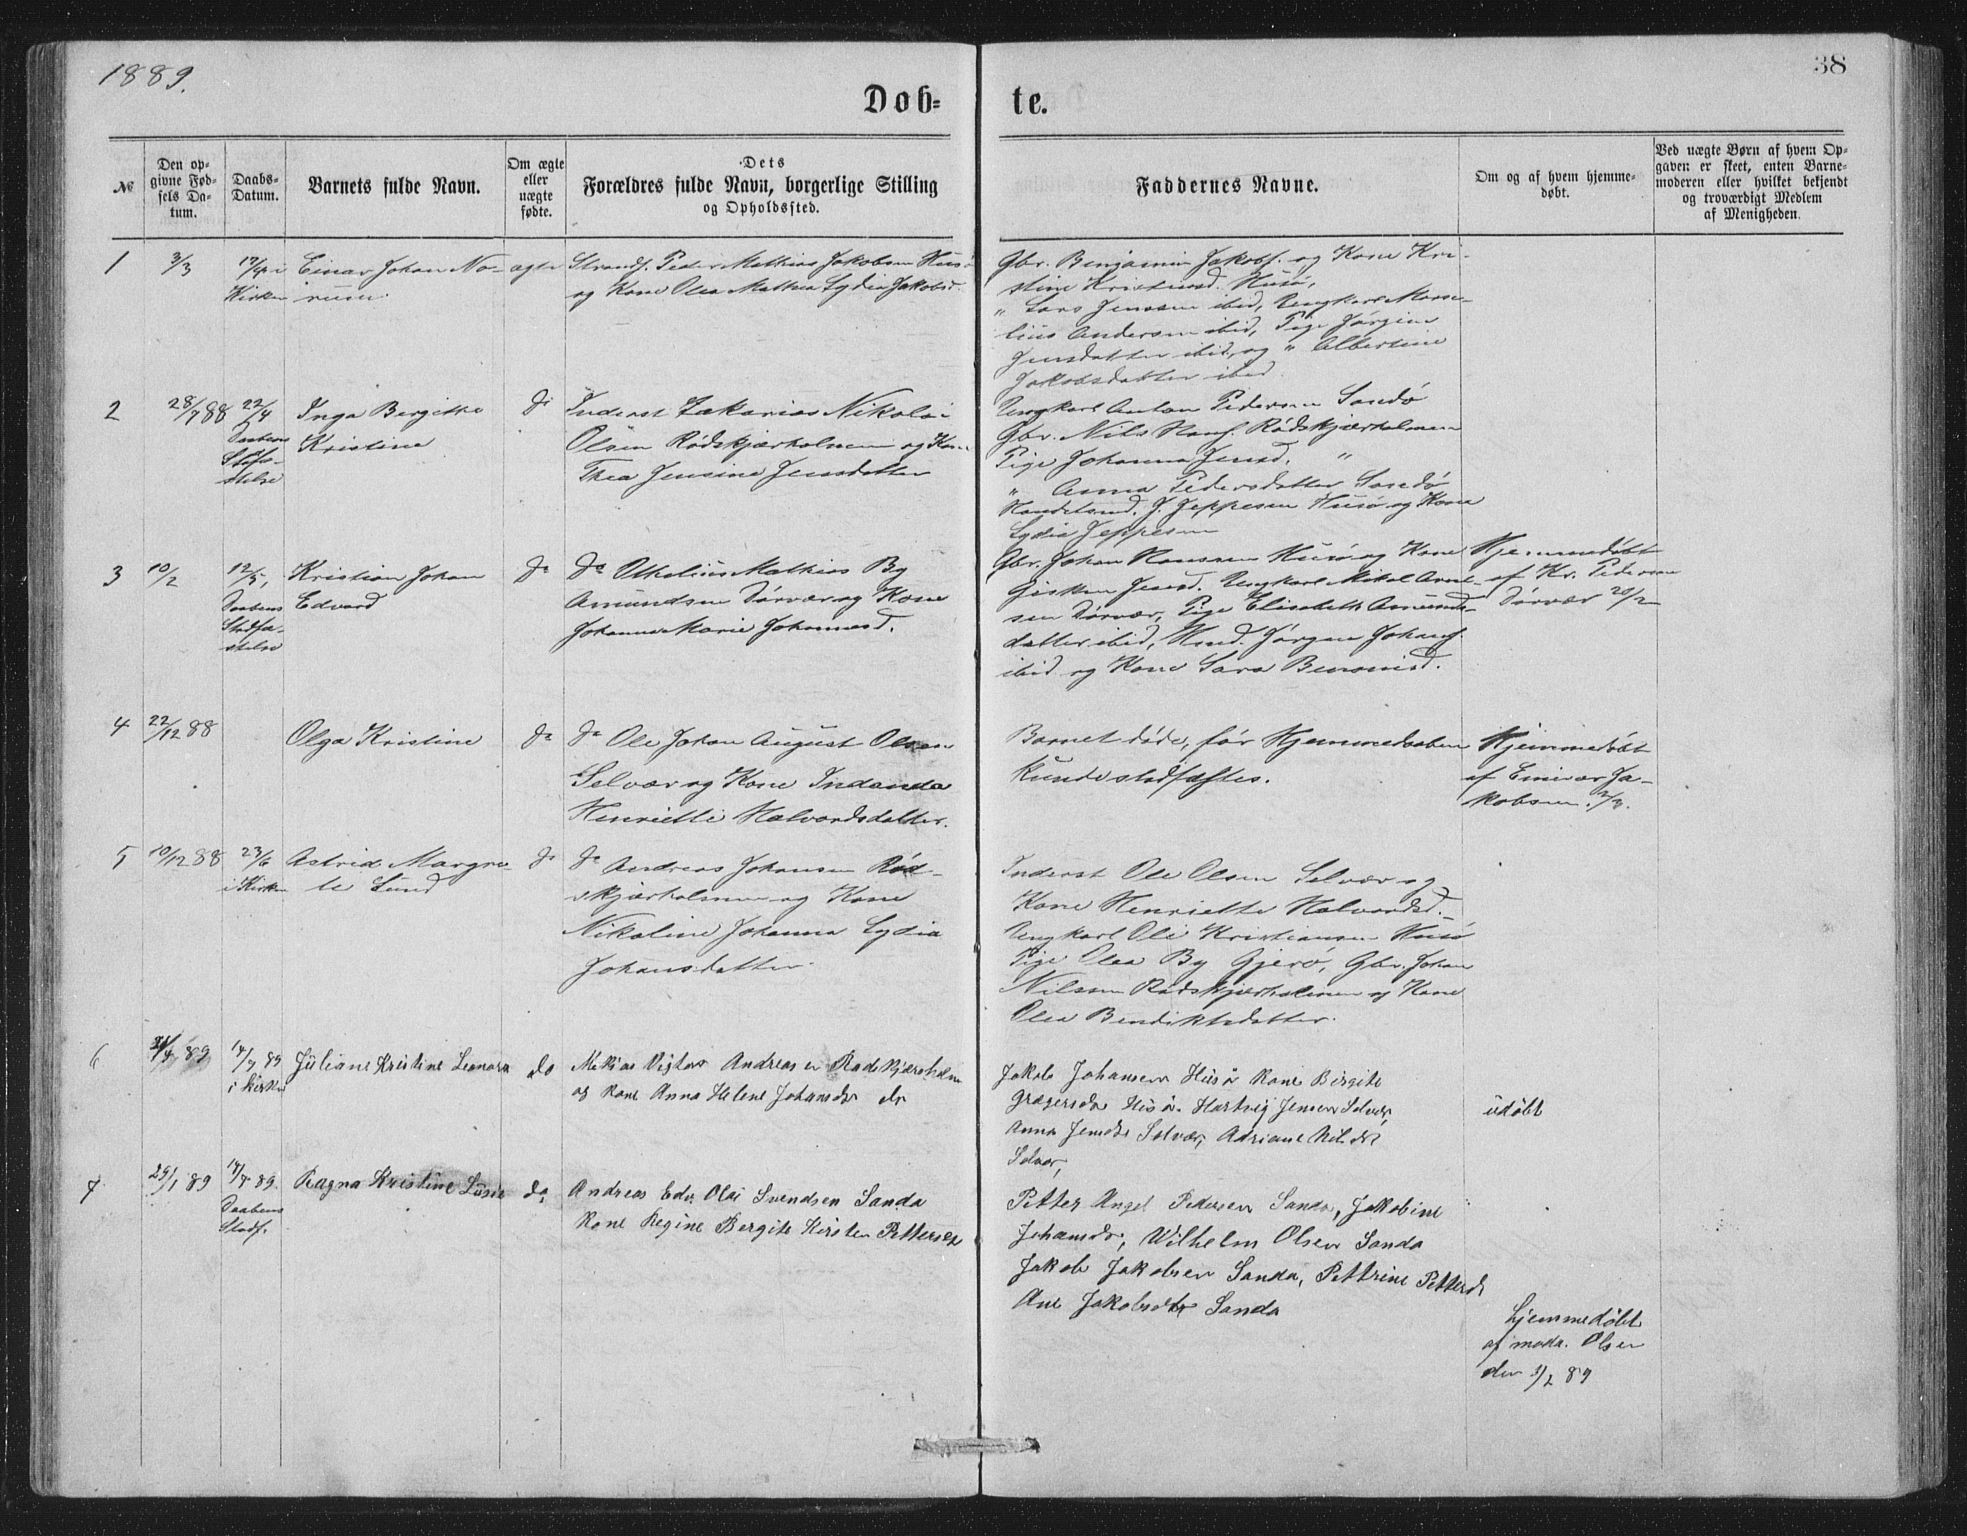 1889.
38
Døb-
te.
№
Den op-
givne Fød-
sels Da-
tum.
Daabs-
Datum.
Barnets fulde Navn.
Om ægte
eller
uægte
fødte.
Dets
Forældres fulde Navn, borgerlige Stilling
og Opholdssted.
Faddernes Navne.
Om og af hvem hjemme-
døbt.
Ved uægte Børn af hvem Op-
gaven er skeet, enten Barne-
moderen eller hvilket bekjendt
og troværdigt Medlem
af Menigheden.
1
3/3
i
Kirken
Einar Johan No-
rum.
ægte
Strands. Peder Mathias Jakobsen Husø
og Kone Olea Mathea Lydia Jakobsd.
Gbr. Benjamin Jakobs. og Kone Kri-
stine Kristiansd. Husø,
" Lars Jenssen ibid, Ungkarl Marse-
lius Andersen ibid, Pige Jørgine
Jensdatter ibid, og " Albertine
Jakobsdatter ibid.
2
28/7 88
22/4
Daabens
Stadfæ-
stelse
Inga Bergitte
Kristine
do
Inderst Zakarias Nikolai
Olsen Rødskjærholmen og Kone
Thea Jensine Jensdatter
Ungkarl Anton Pedersen Sandø
Gbr. Nils Hans. Rødskjærholmen
Pige Johanna Jensd. "
" Anna Pedersdatter Sandø
Handelsmd. J. Jeppesen Husø og Kone
Lydia Jeppesen
3
10/2
12/5,
Daabens
Stadfæ-
stelse
Kristian Johan
Edvard
do
do Othelius Mathias By
Amundsen Sørvær og Kone
Johanna Marie Johannesd.
Gbr. Johan Hanssen Husø og Kone
Gisken Jensd. Ungkarl Mikal Arnt-
sen Sørvær, Pige Elisabeth Amunds-
datter ibid, Hmd. Jørgen Johans.
ibid og Kone Sara Benonisd.
Hjemmedøbt
af Kr. Pedersen
Sørvær 20/2
4
22/12 88
Olga Kristine
do
do Ole Johan August Olsen
Selvær og Kone Indianda
Henriette Halvardsdatter.
Barnet døde, før Hjemmedaaben
kunde stadfæstes.
Hjemmedøbt
af Einivar Ja-
kobsen.
5
10/12 88
23/6
i Kirken
Astrid Margre-
te Lund
do
do Andreas Johansen Rød-
skjærholmen og Kone
Nikoline Johanna Lydia
Johansdatter.
Inderst Ole Olsen Selvær og
Kone Henriette Halvardsd.
Ungkarl Ole Kristiansen Husø
Pige Olea By Gjerø, Gbr. Johan
Nilsen Rødskjærholmen og Kone
Olea Bendiktsdatter.
6
89
14/7 89
i kirken
Juliane Kristine Leonora
do
Mekias Vigtor Andreasen Rødskjærholmen
og Kone Anna Helene Johansdr do
Jakob Johansen Husø Kone Birgite
Grægersdr Husø. Hartvig Jensen Selvær,
Anna Jensdr Selvær, Adriane Nil. dr
Selvær,
udøbt
7
29/1 89
14/7 89.
Daabens
Stadf.
Ragna Kristine Lusie
do
Andreas Edv. Olai Svendsen Sanda
Kone Regine Bergite Kirsten Pettersdr
Petter Angel Pedersen Sanda, Jakobine
Johansdr, Wilhelm Olsen Sanda
Jakob Jakobsen Sanda, Pettrine Pettersdr
Ane Jakobsdtr Sanda
hjemmedøbt
af mada. Olsen
den 3/2 89